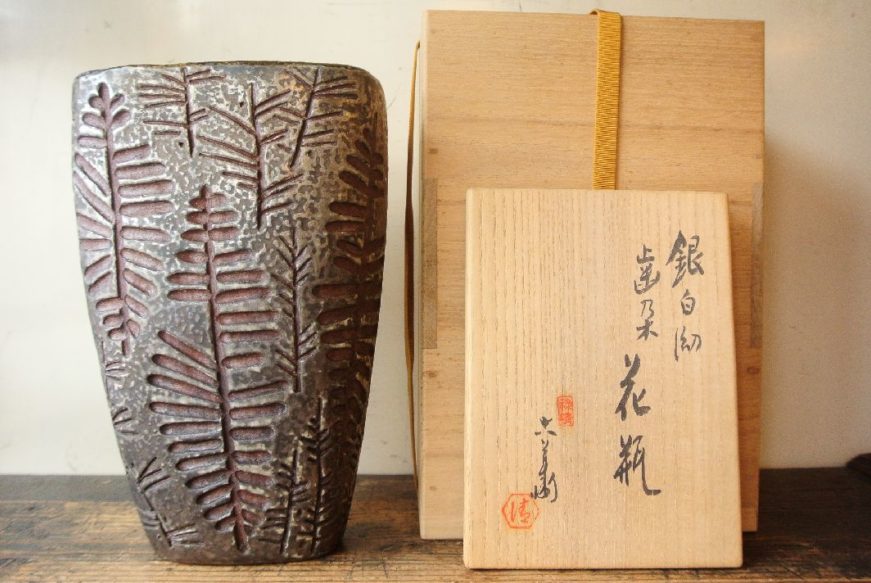 銀白泑
歯朶
花瓶
六兵衛
清